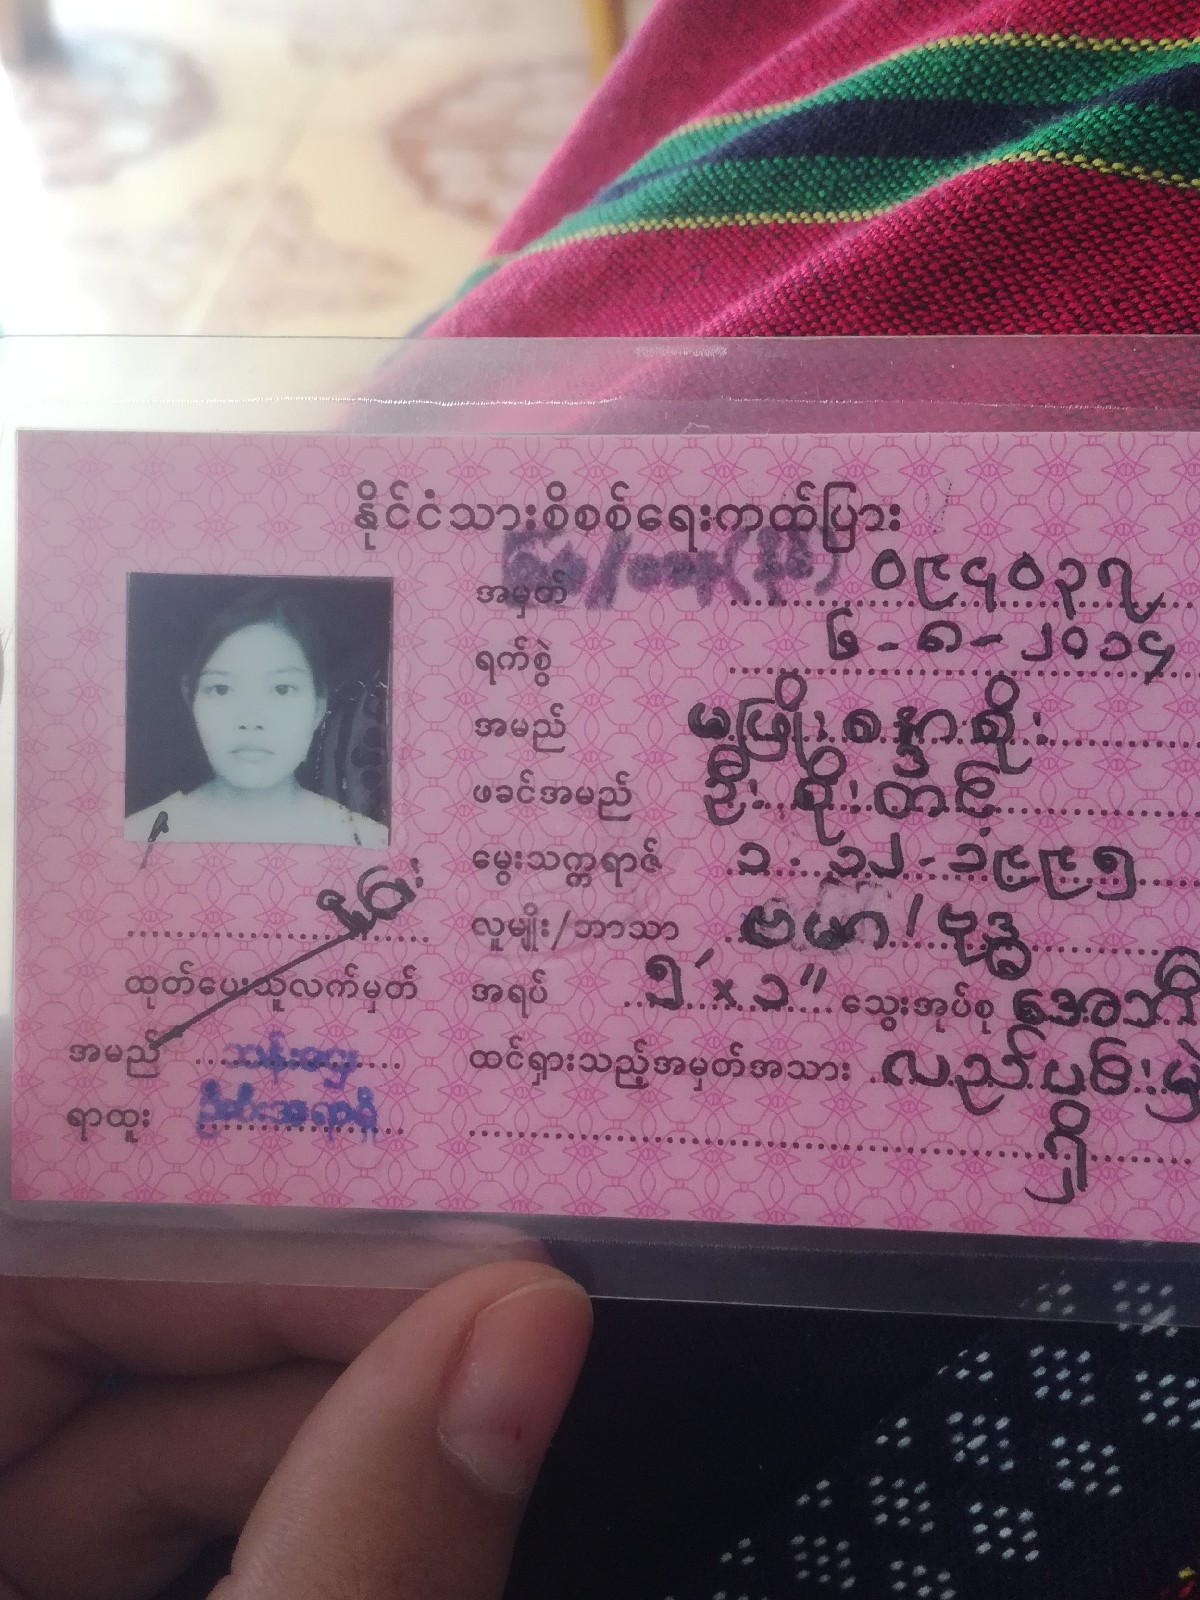 နိုင်ငံသားစိစစ်ရေးကတ်ပြား
အမှတ် (နိုင်) ၀၉၄၀၃၇
ရက်စွဲ ၆-၈-၂၀၁၄
အမည် မဖြိုးစန္ဒာစိုး
ဖခင်အမည် ဦးစိုးတင့်
မွေးသက္ကရာဇ် ၁.၁၂.၁၉၉၅
လူမျိုး/ဘာသာ ဗမာ/ဗုဒ္ဓ
အရပ် ၅'x၁" သွေးအုပ်စု အေဘီ
ထင်ရှားသည့်အမှတ်အသား လည်ပင်းမှဲ့
ရှိ
ထုတ်ပေးသူလက်မှတ်
အမည် သန်းဌေး
ရာထူး ဦးစီးအရာရှိ